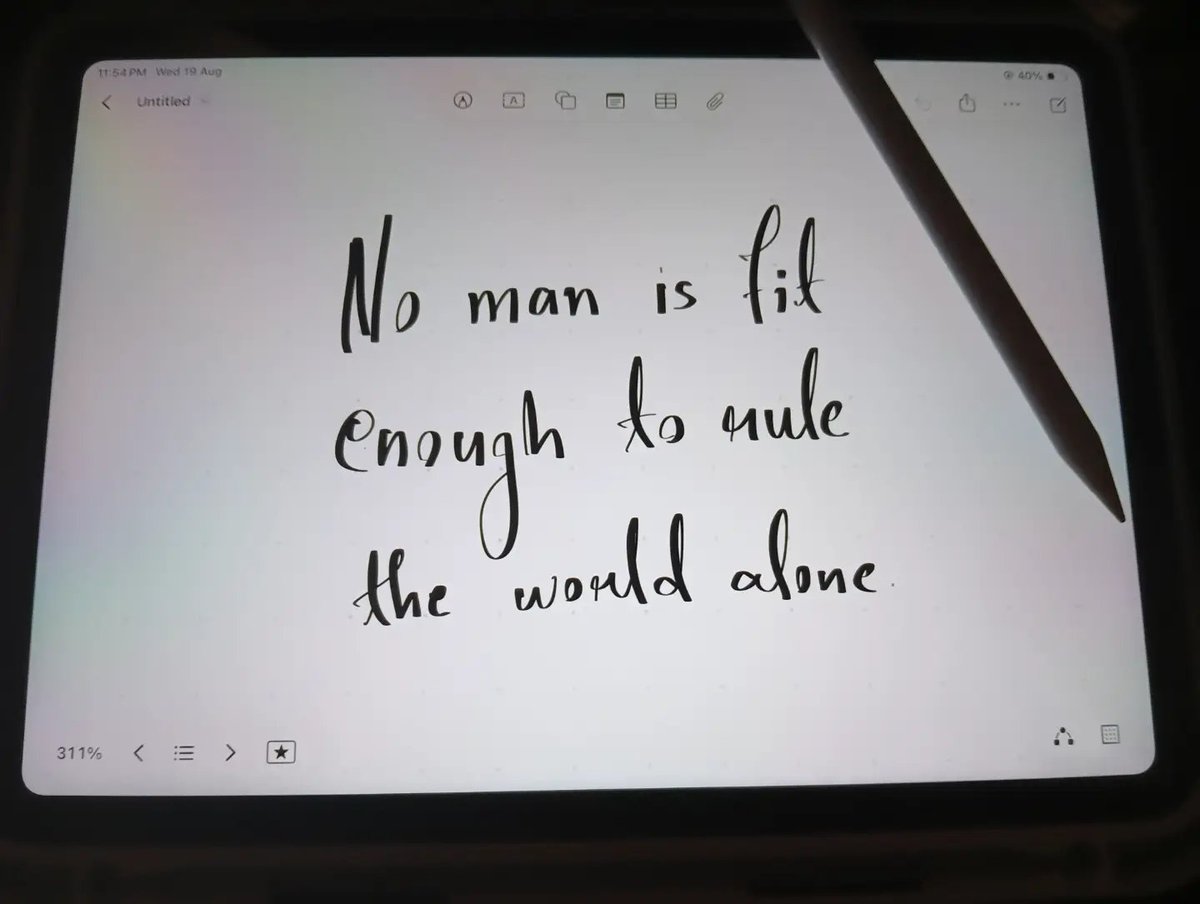 11:54 PM Wed 19 Aug
40%
Untitled
No man is fit
enough to rule
the world alone.
311%